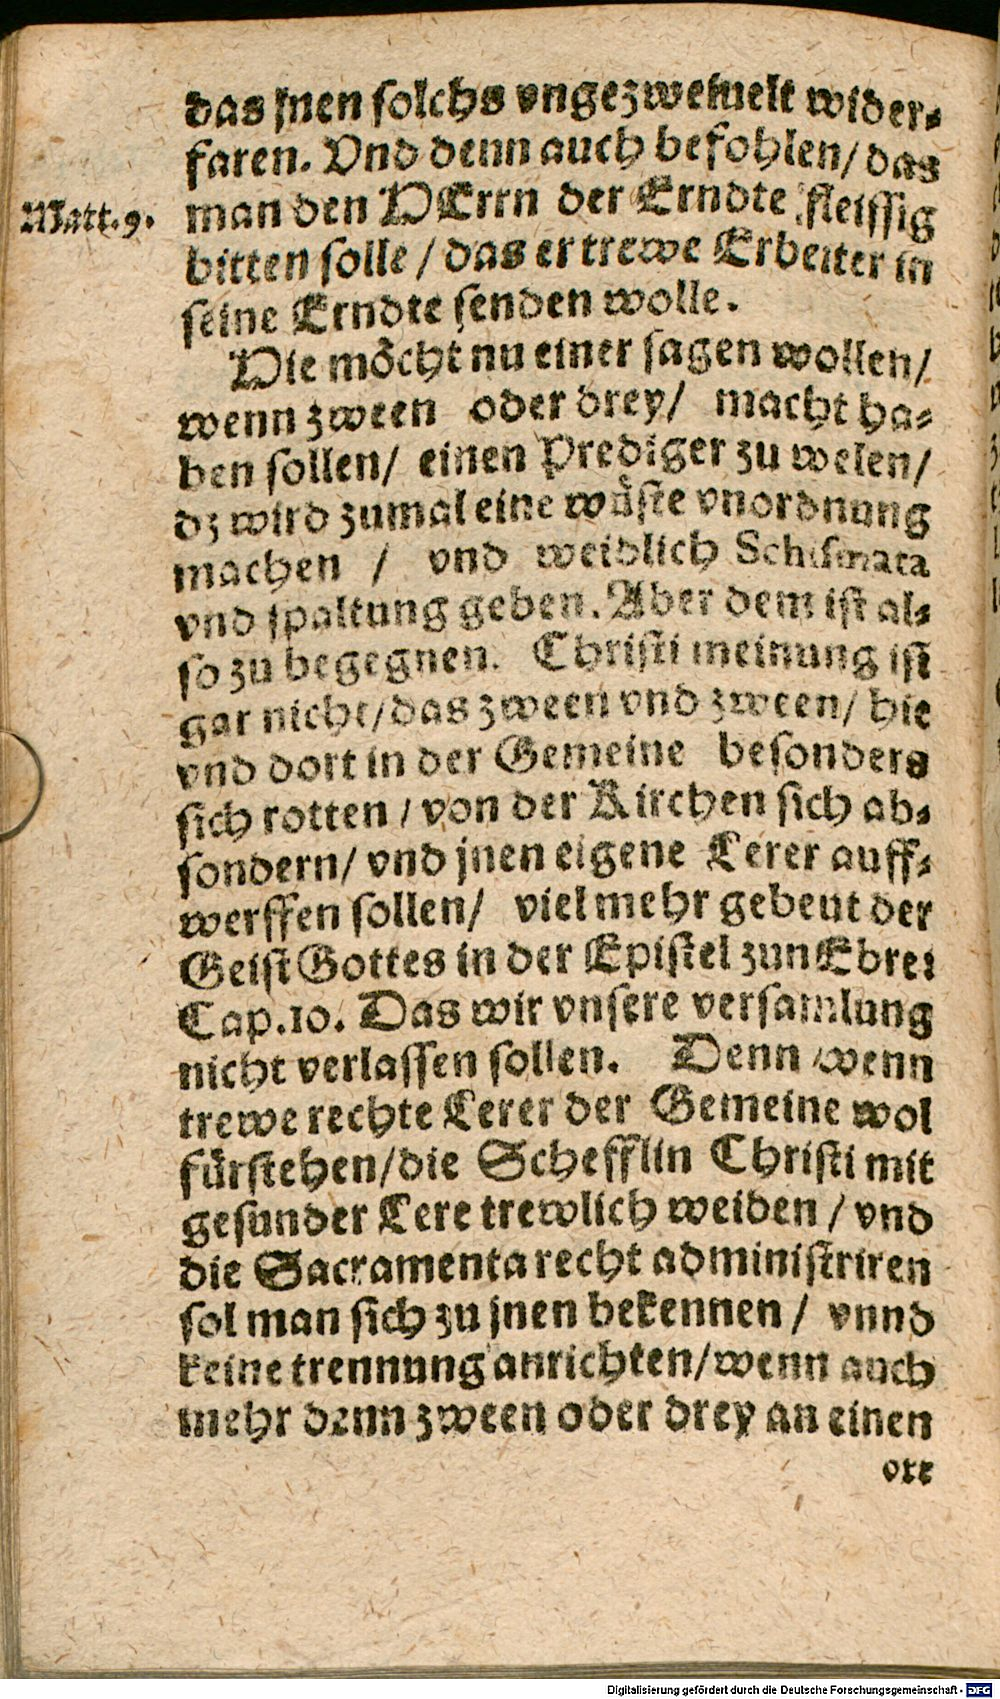 das jnen solchs vngezweiuelt wider-
faren. Vnd denn auch befohlen/ das
Matt. 9.
man den HErrn der Erndte fleissig
bitten solle / das er trewe Erbeiter in
seine Erndte senden wolle.
Hie möcht nu einer sagen wollen/
wenn zween oder drey/ macht ha-
ben sollen/ einen Prediger zu welen/
dz wird zumal eine wüste vnordnung
machen / vnd weidlich Schismata
vnd spaltung geben. Aber dem ist al-
so zu begegnen. Christi meinung ist
gar nicht/ das zween vnd zween/ hie
vnd dort in der Gemeine besonders
sich rotten / von der Kirchen sich ab-
sondern/ vnd jnen eigene Lerer auff-
werffen sollen/ viel mehr gebeut der
Geist Gottes in der Epistel zun Ebre:
Cap. 10. Das wir vnsere versamlung
nicht verlassen sollen. Denn wenn
trewe rechte Lerer der Gemeine wol
fürstehen/ die Schefflin Christi mit
gesunder Lere trewlich weiden / vnd
die Sacramenta recht administriren
sol man sich zu jnen bekennen / vnnd
keine trennung anrichten/ wenn auch
mehr denn zween oder drey an einen
ort
Digitalisierung gefördert durch die Deutsche Forschungsgemeinschaft - DFG